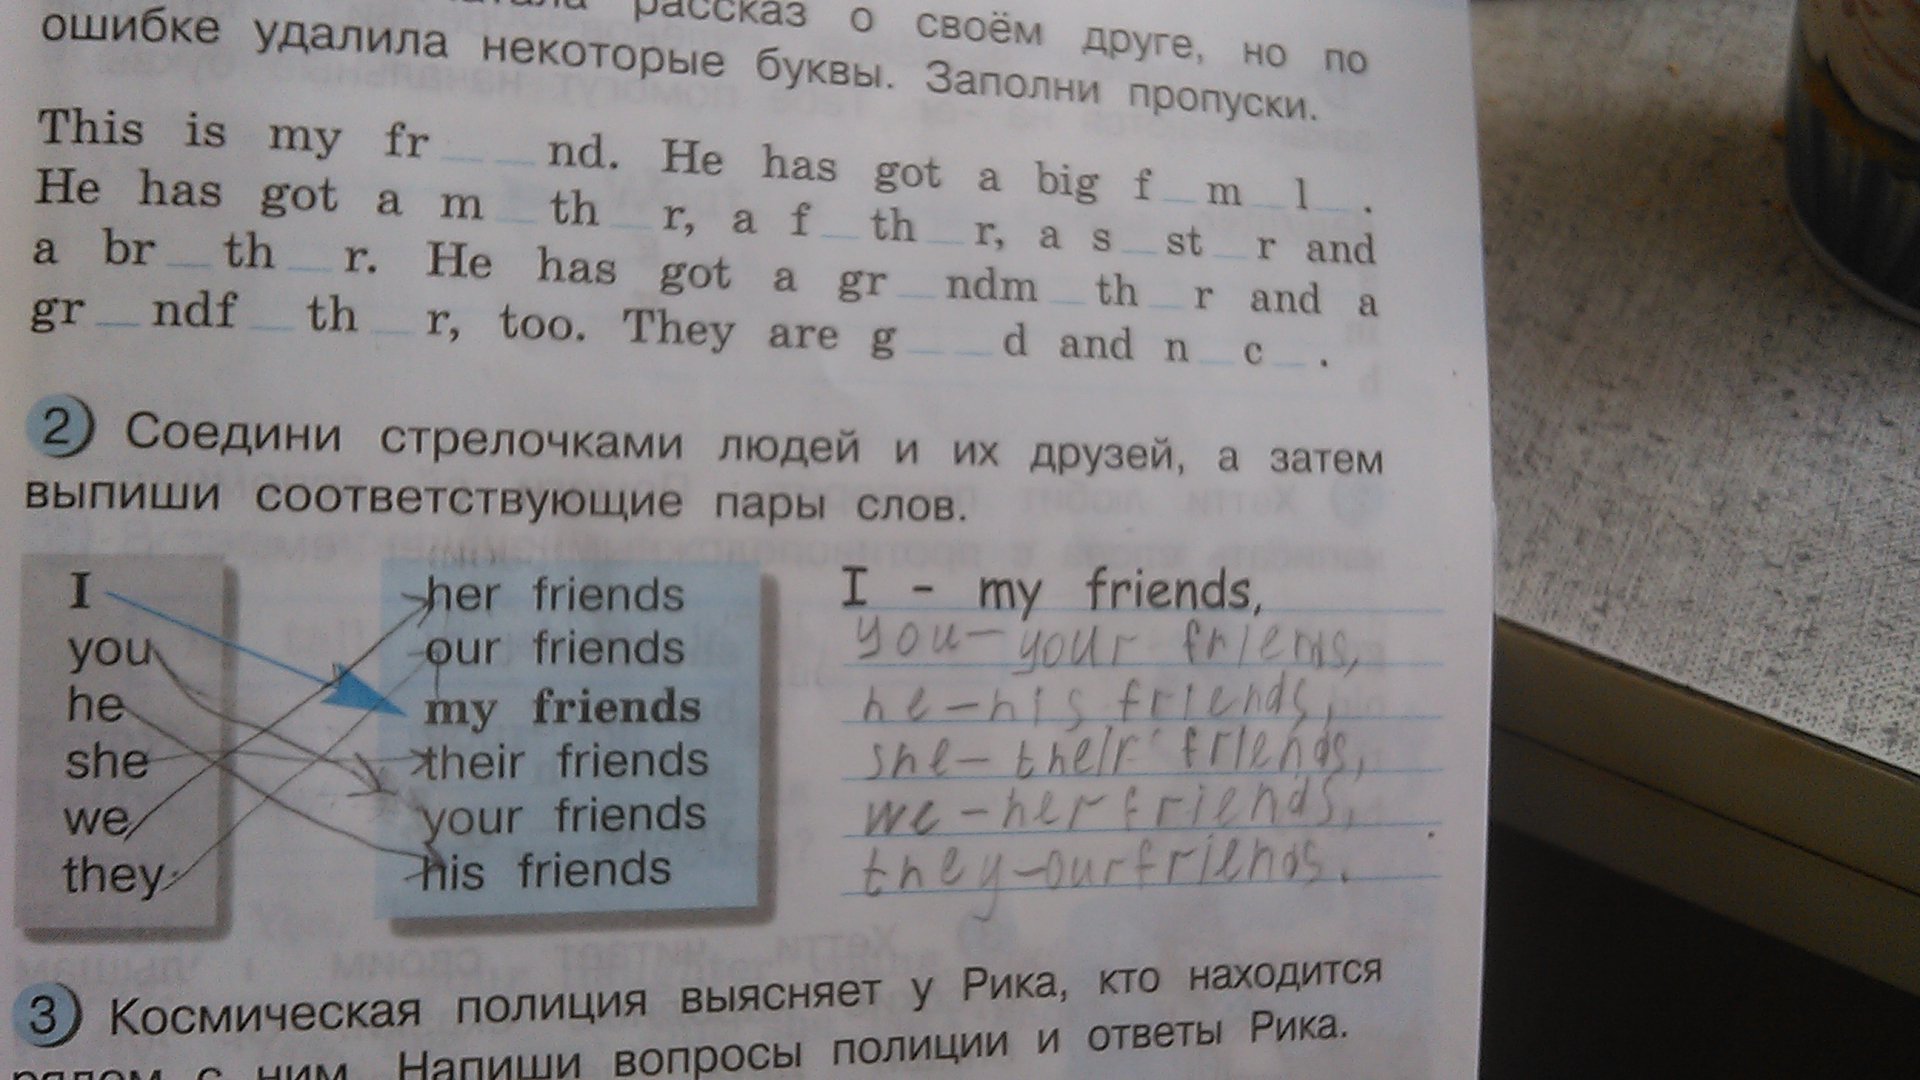 рассказ о своём друге, но по
ошибке удалила некоторые буквы. Заполни пропуски.
This is my fr _ _ nd. He has got a big f _ m _ l _ .
He has got a m _ th _ r, a f _ th _ r, a s _ st _ r and
a br _ th _ r. He has got a gr _ ndm _ th _ r and a
gr _ ndf _ th _ r, too. They are g _ _ d and n _ c _ .
2 Соедини стрелочками людей и их друзей, а затем
выпиши соответствующие пары слов.
I
you
he
she
we
they
her friends
our friends
my friends
their friends
your friends
his friends
I - my friends,
you – your friends,
he – his friends,
she – their friends,
we – her friends,
they – our friends.
3 Космическая полиция выясняет у Рика, кто находится
рядом с ним. Напиши вопросы полиции и ответы Рика.